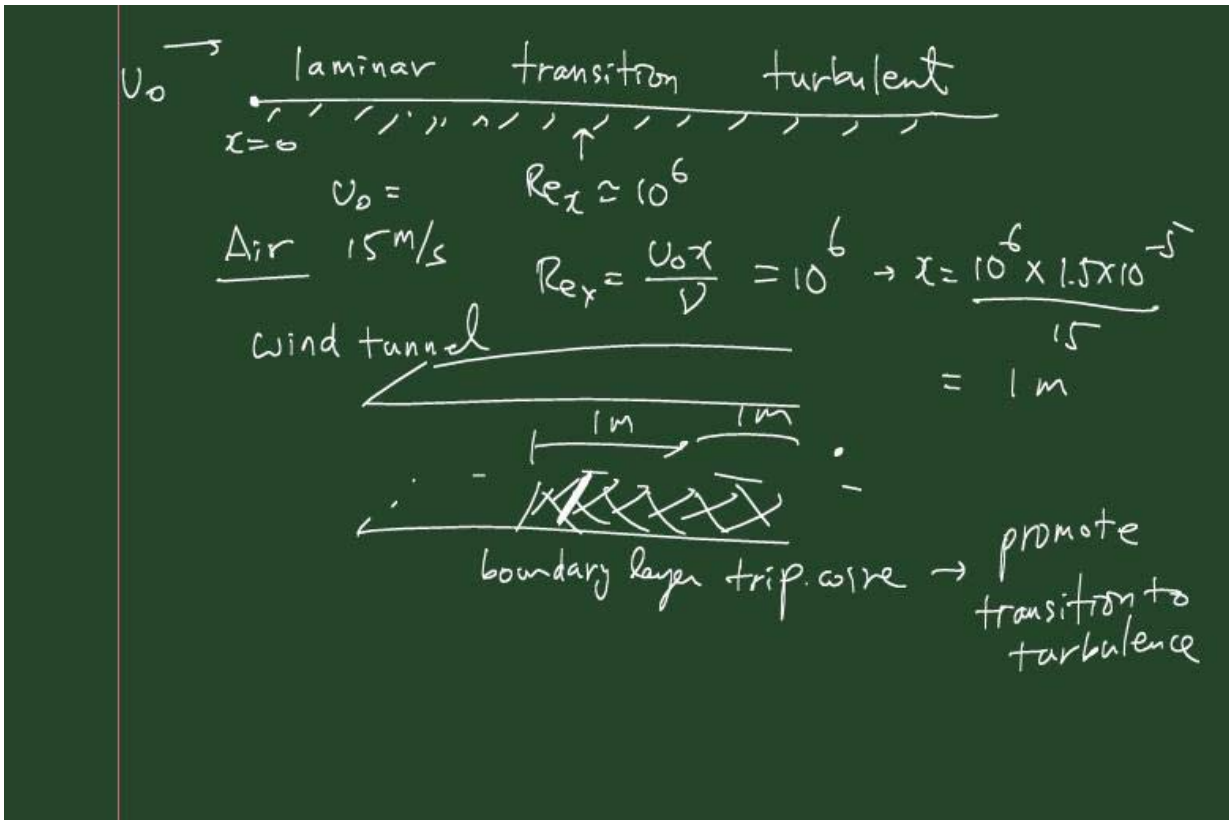 U₀ → laminar transition turbulent
x=0 ↑
U₀ = Reₓ ≃ 10⁶
Air 15 m/s Reₓ = U₀x/ν = 10⁶ → x = 10⁶ × 1.5×10⁻⁵ / 15
wind tunnel
= 1 m
1m 1m
boundary layer trip. wire → promote
transition to
turbulence